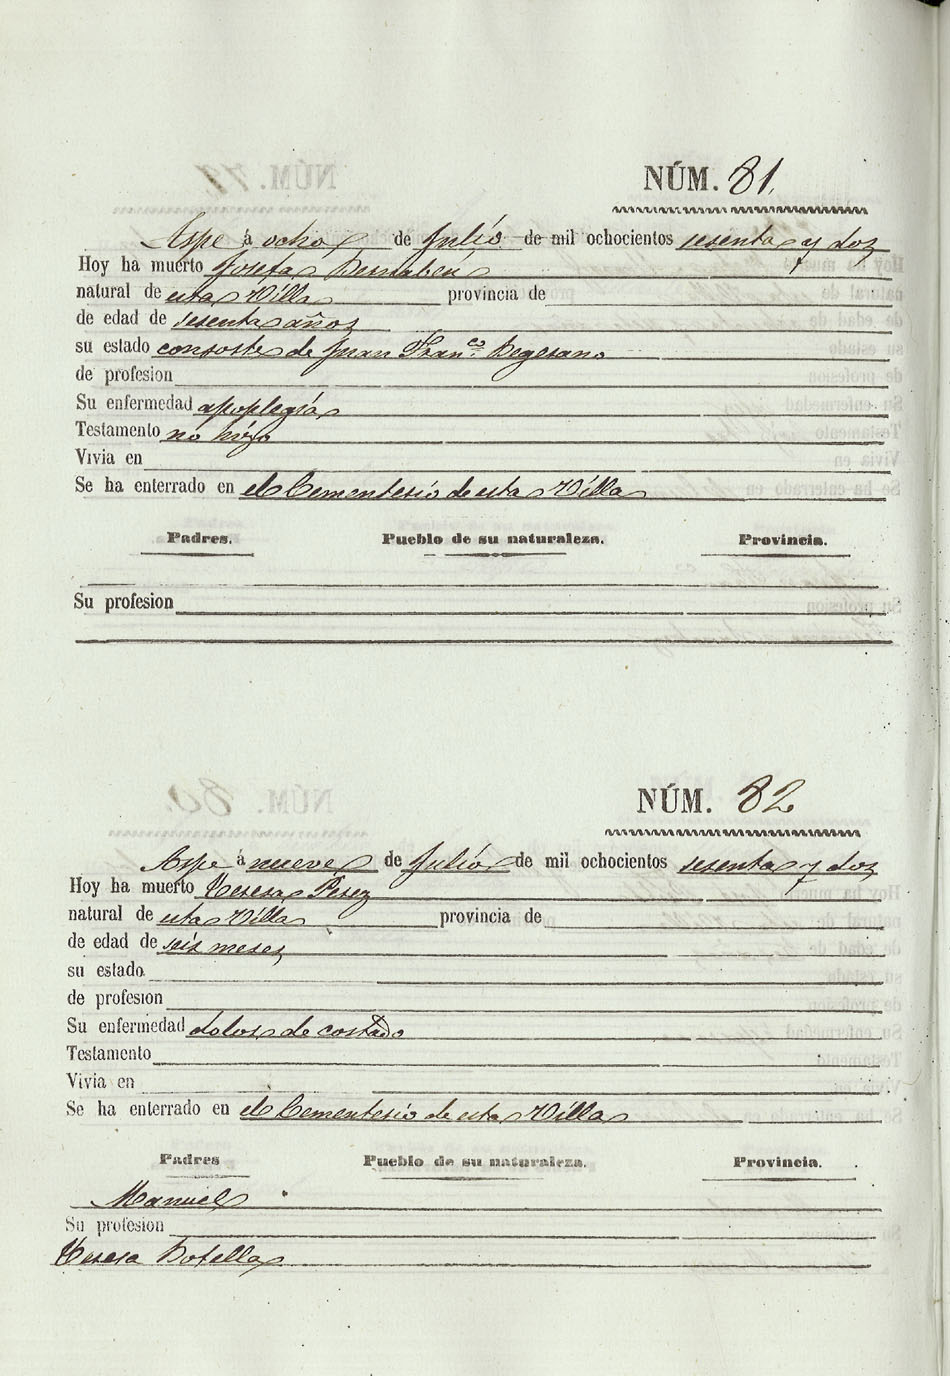 NÚM. 81.
Aspe á ocho de Julio de mil ochocientos sesenta y dos
Hoy ha muerto Josefa Bernabeu
natural de esta Villa provincia de
de edad de sesenta años
su estado consorte de Juan Fran.co
de profesion
Su enfermedad apoplegía
Testamento no hizo
Vivia en
Se ha enterrado en el Cementerio de esta Villa
Padres. Pueblo de su naturaleza. Provincia.
Su profesion
NÚM. 82
Aspe á nueve de Julio de mil ochocientos sesenta y dos
Hoy ha muerto Teresa Perez
natural de esta Villa provincia de
de edad de seis meses
su estado
de profesion
Su enfermedad dolor de costado
Testamento
Vivia en
Se ha enterrado en el Cementerio de esta Villa
Padres Pueblo de su naturaleza. Provincia.
Manuel
Su profesion
Teresa Botella